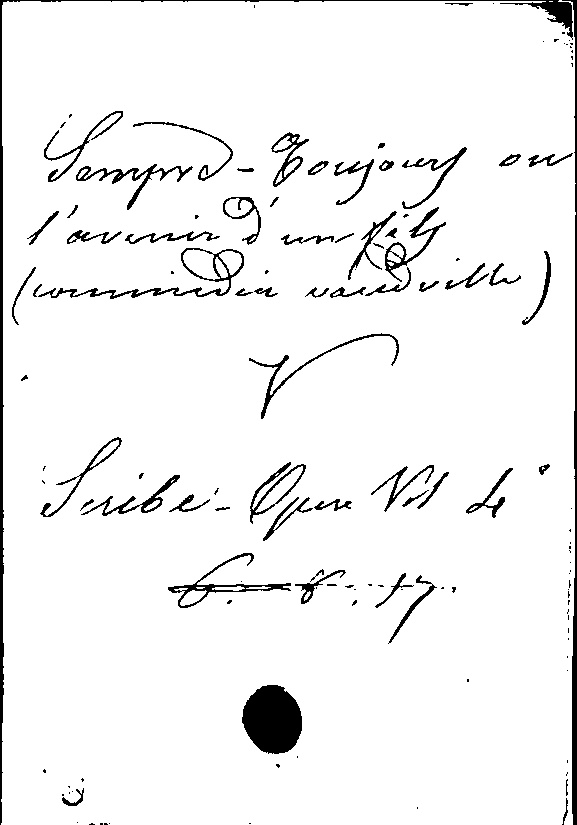 Sempre - Toujours ou
l'avenir d'un fils
(commedia vaudville)
V
Scribe - Opere Vol 4°
6. 8. 17